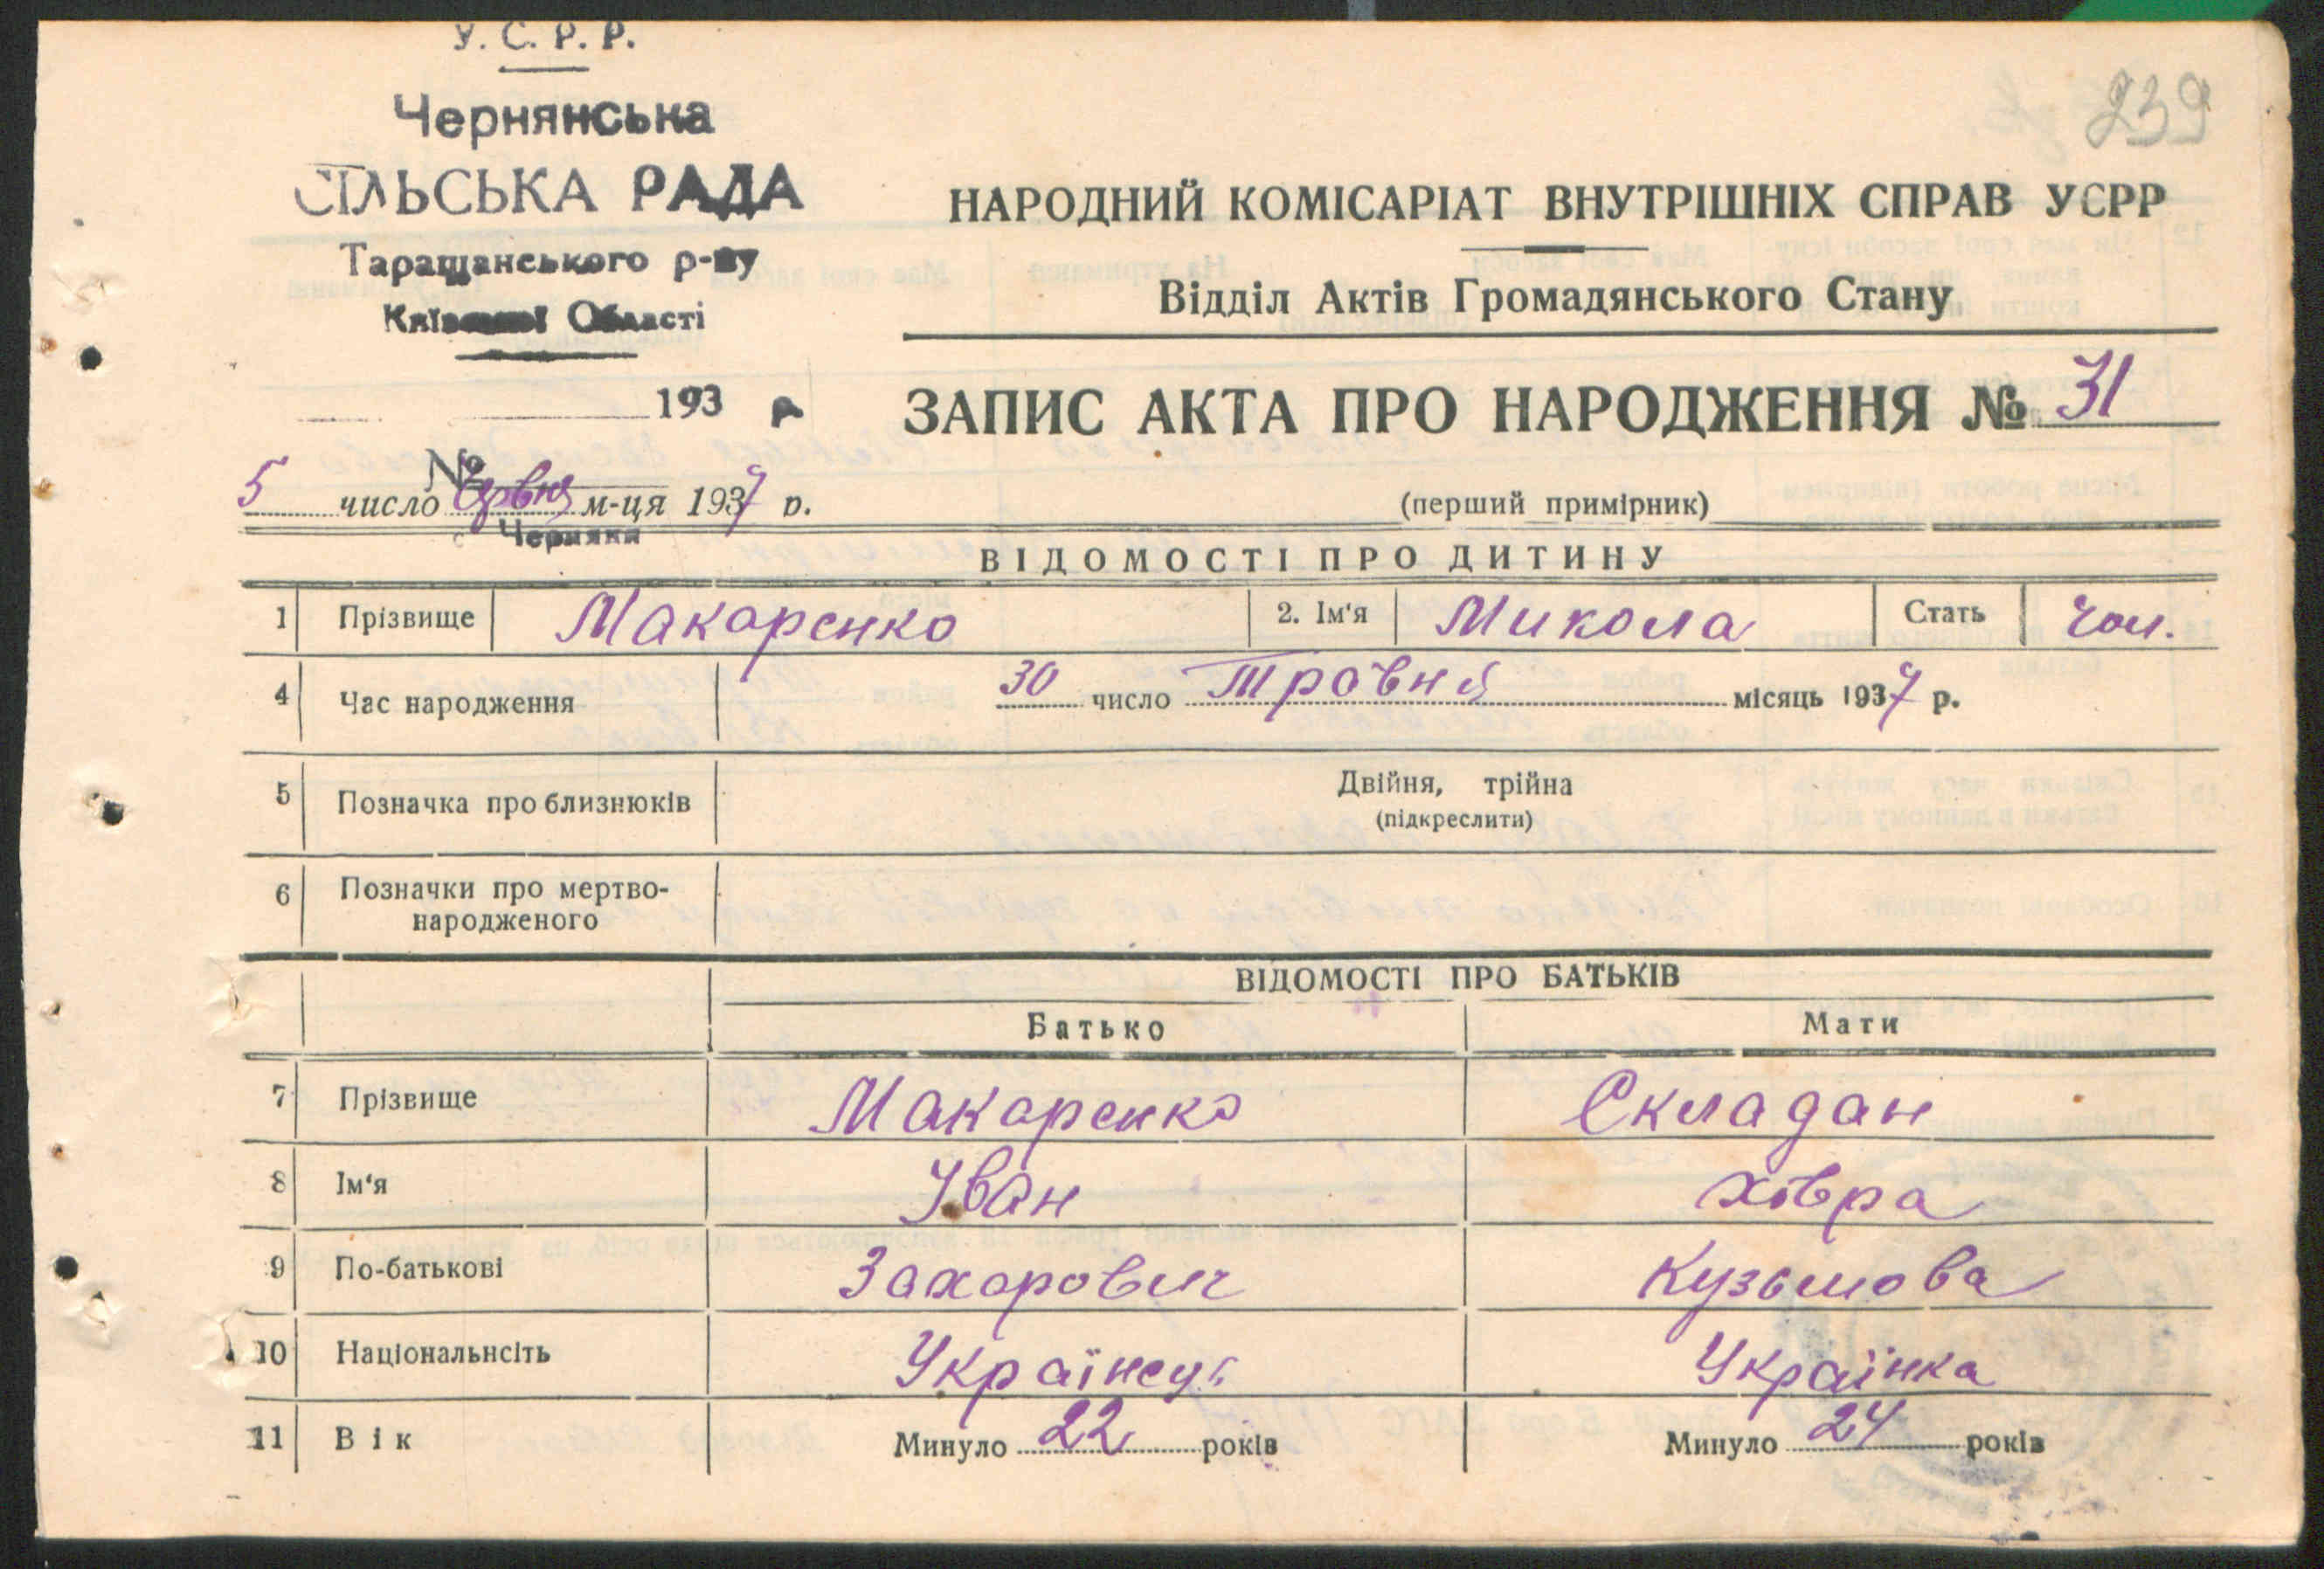 У. С. Р. Р.
Чернянська
СІЛЬСЬКА РАДА
Таращанського р-ну
Київської Області
193 р
№
с Черняки
239
НАРОДНИЙ КОМІСАРІАТ ВНУТРІШНІХ СПРАВ УСРР
Відділ Актів Громадянського Стану
ЗАПИС АКТА ПРО НАРОДЖЕННЯ № 31
5 число червня м-ця 1937 р.
(перший примірник)
ВІДОМОСТІ ПРО ДИТИНУ
1 Прізвище Макаренко 2. Ім'я Микола Стать чол.
4 Час народження 30 число Травня місяць 1937 р.
5 Позначка про близнюків Двійня, трійна
(підкреслити)
6 Позначки про мертво-
народженого
ВІДОМОСТІ ПРО БАТЬКІВ
Батько Мати
7 Прізвище Макаренко Складан
8 Ім'я Іван Хівра
9 По-батькові Захарович Кузьмова
10 Національнсіть Українець Українка
11 Вік Минуло 22 років Минуло 24 років